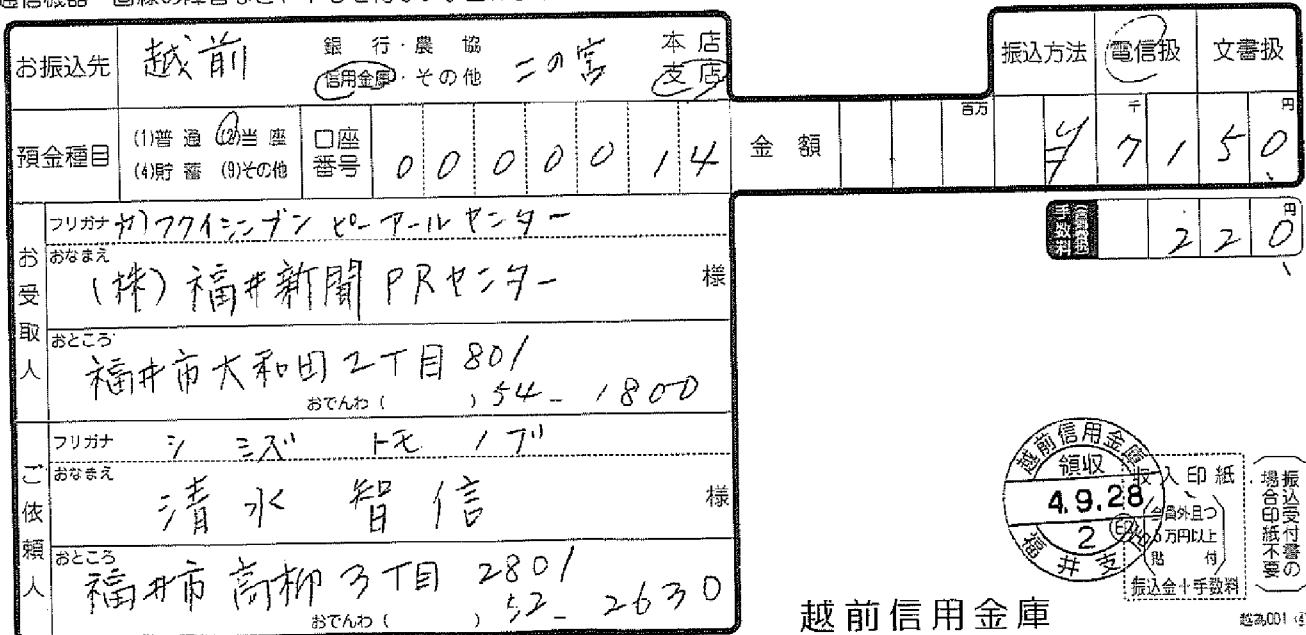 お振込先 越前 銀行・農協 信用金庫・その他 二の宮 本店 支店
振込方法 電信扱 文書扱
預金種目 (1)普通 (2)当座 (4)貯蓄 (9)その他 口座番号 0000014
金額 百万 千 円 ¥7150
手数料 円 220
お受取人
フリガナ カ)フクイシンブン ピーアールセンター
おなまえ (株)福井新聞PRセンター 様
おところ 福井市大和田2丁目801
おでんわ( ) 54-1800
ご依頼人
フリガナ シミズ トモノブ
おなまえ 清水 智信 様
おところ 福井市高柳3丁目2801
おでんわ( ) 52-2630
越前信用金庫
領収
4.9.28
2
福井支
収入印紙
会員外且つ
万円以上
貼付
振込金+手数料
振込受付書の
場合印紙不要
越前信用金庫